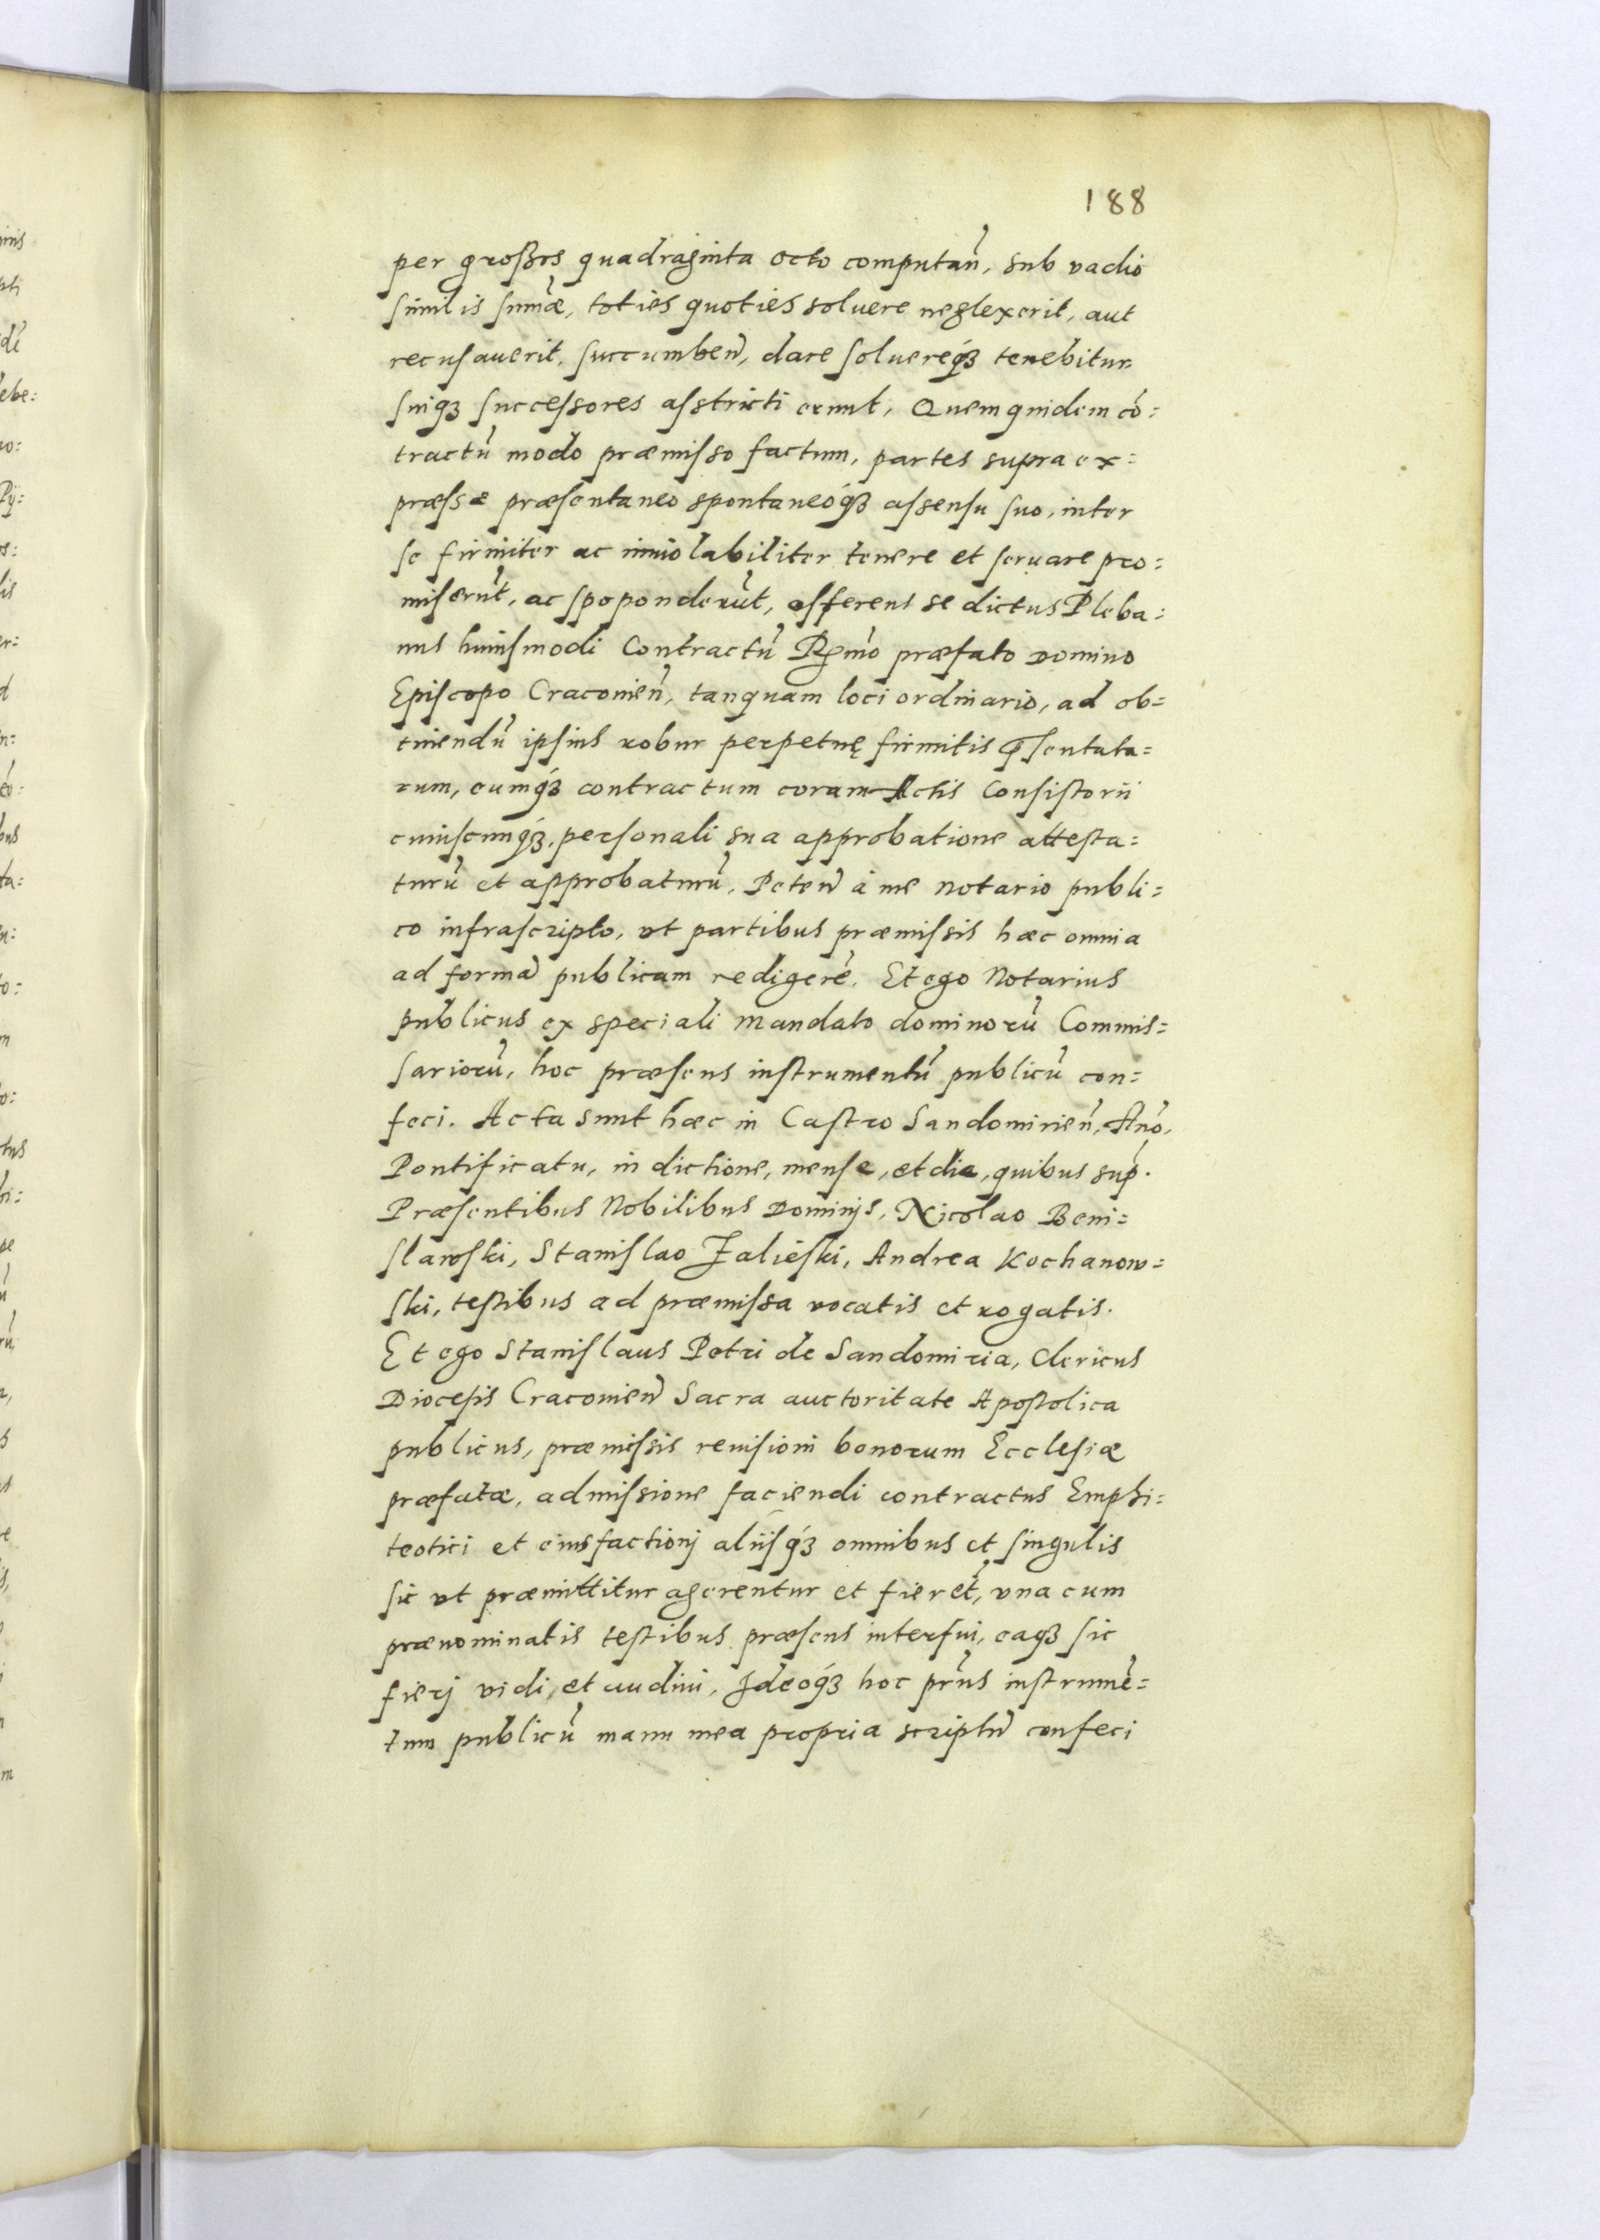 188
per grossos quadraginta octo computan̄, sub vadio
similis sum̄æ, toties quoties soluere neglexerit, aut
recusauerit, succumben̄, dare soluereqȝ tenebitur
suiqȝ successores asstricti erunt, Quemquidem cō=
tractū modo præmisso factum, partes supra ex=
præssæ præsentaneo spontaneóqȝ assensu suo, inter
se firmiter ac inuiolabiliter tenere et seruare pro=
miserūt, ac spoponderūt, offerens se dictus Pleba=
nus huiusmodi Contractū Rm̄o præfato Domino
Episcopo Cracouien̄, tanquam loci ordinario, ad ob=
tinendū ipsius robur perpetuę firmitis p̄sentatu=
rum, eumqȝ contractum coram Actis Consistorii
cuiuscunqȝ, personali sua approbatione attesta=
turū et approbaturū, Peten̄ à me Notario publi=
co infrascripto, vt partibus præmissis hæc omnia
ad formā publicam redigerē. Et ego Notarius
publicus ex speciali Mandato dominorū Commis=
sariorū, hoc præsens instrumentū publicū con=
feci. Acta sunt hæc in Castro Sandomirien̄, An̄o,
Pontificatu, in dictione, mense, et die, quibus sup̄.
Præsentibus Nobilibus Dominis, Nicolao Beni=
slawski, Stanislao Zalieski, Andrea Kochanow=
ski, testibus ad præmissa vocatis et rogatis.
Et ego Stanislaus Petri de Sandomiria, Clericus
Diocesis Cracouien̄ Sacra auctoritate Apostolica
publicus, præmissis reuisioni bonorum Ecclesiæ
præfatæ, admissione faciendi contractus Emphi=
teotici et eiusfactionj aliisqȝ omnibus et singulis
sic vt præmittitur agerentur et fierēt, vna cum
prænominatis testibus præsens interfui, eaqȝ sic
fierj vidi, et audiui, Ideoqȝ hoc pr̄ns instrumē=
tum publicū manu mea propria scriptū confeci